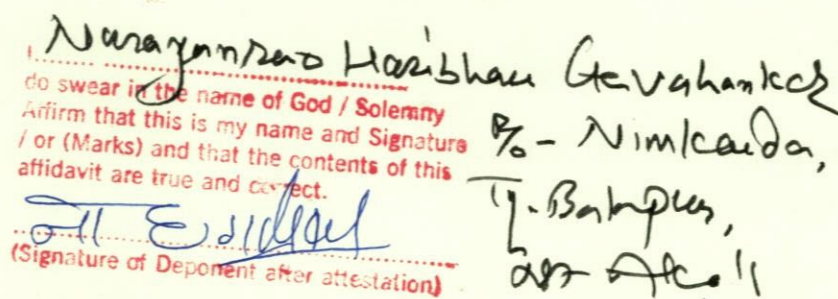 I Narayanrao Haribhau Gavhankar
do swear in the name of God / Solemny
Arfirm that this is my name and Signature
/ or (Marks) and that the contents of this
affidavit are true and correct.
(Signature of Deponent after attestation)
R/o - Nimkarda,
Tq. Balapur,
Dist Akola